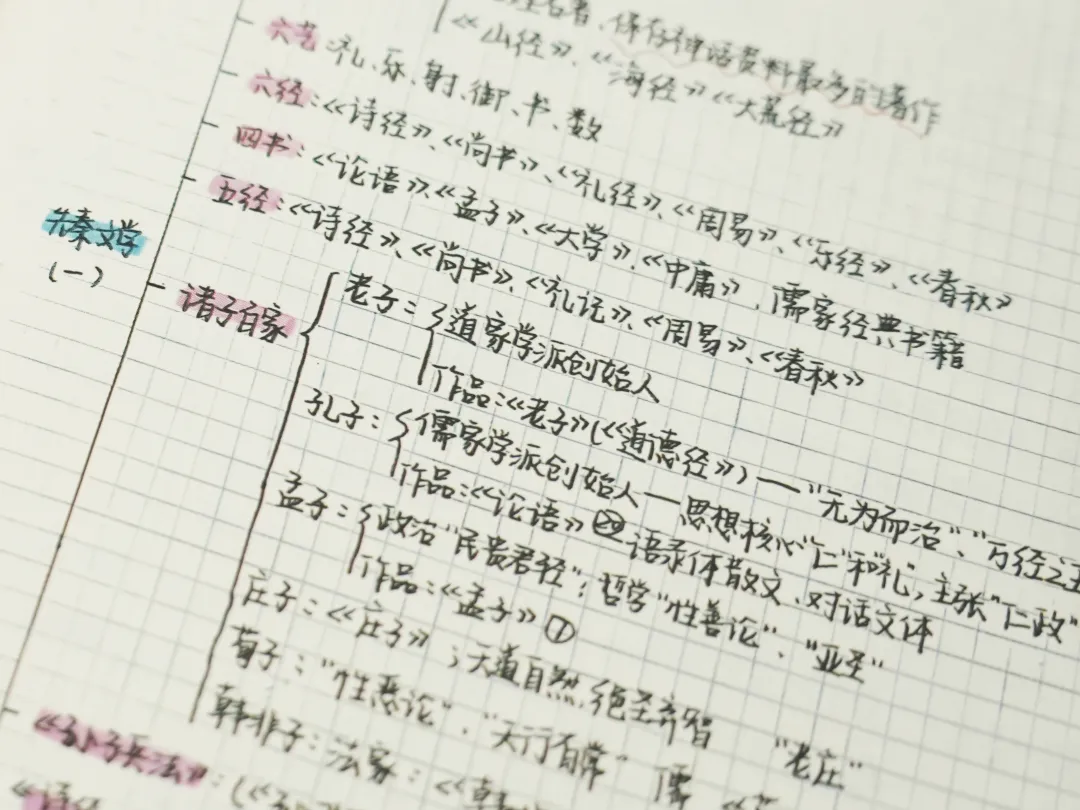 保存神话资料最多的著作
《山经》、《海经》《大荒经》
六艺:礼、乐、射、御、书、数
六经:《诗经》、《尚书》、《礼经》、《周易》、《乐经》、《春秋》
四书:《论语》、《孟子》、《大学》、《中庸》、儒家经典书籍
五经:《诗经》、《尚书》、《礼记》、《周易》、《春秋》
先秦文学
(一)
诸子百家
老子:道家学派创始人
作品:《老子》(《道德经》)—"无为而治"、"万经之王
孔子:儒家学派创始人—思想核心"仁"和"礼",主张"仁政"
作品:《论语》⑳语录体散文、对话文体
孟子:政治"民贵君轻";哲学"性善论"、"亚圣"
作品:《孟子》⑦
庄子:《庄子》;天道自然,绝圣弃智 "老庄"
荀子:"性恶论"、"天行有常" 儒
韩非子:法家:《韩
《孙子兵法》:(《孙